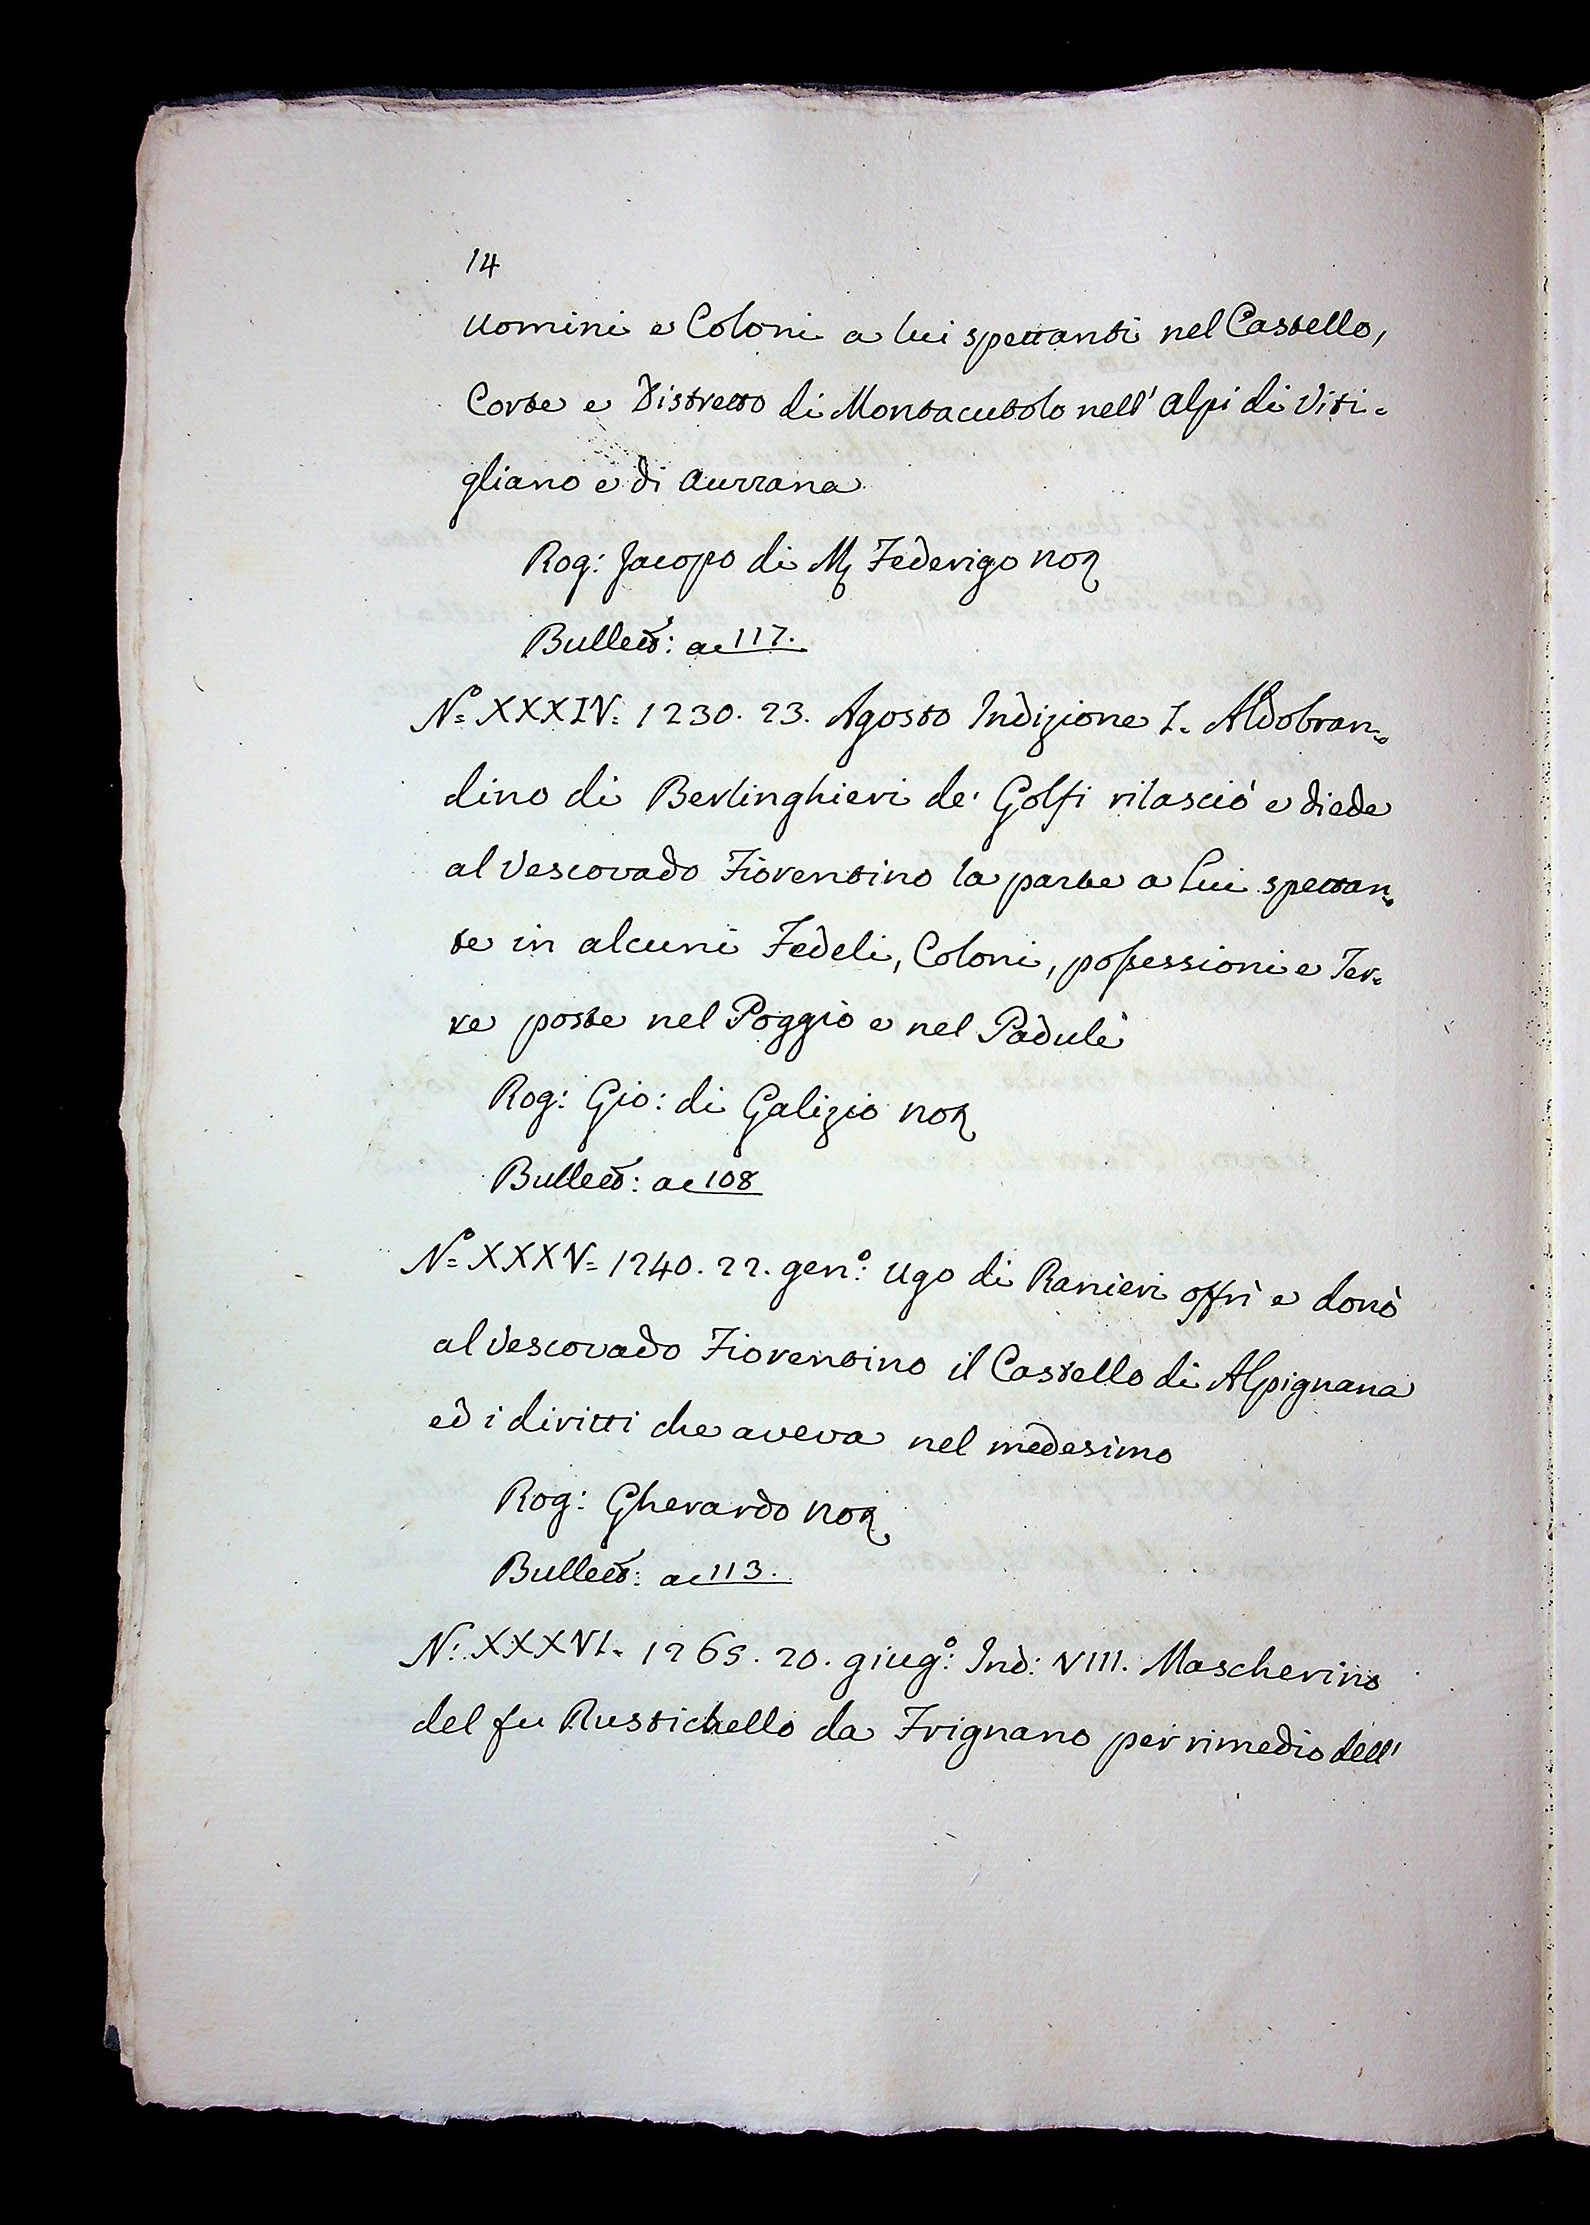 14
Uomini e Coloni a lui spettanti nel Castello,
Corte e Distretto di Montacutolo nell' Alpi di Viti=
gliano e di Aurrana
Rog: Jacopo di M Federigo not
Bullett: a c 117.
N.o XXXIV. 1230. 23. Agosto Indizione I. Aldobran=
dino di Berlinghieri de' Golfi rilasciò e diede
al Vescovado Fiorentino la parte a lui spettan=
te in alcuni Fedeli, Coloni, possessioni e Ter=
re poste nel Poggio e nel Padule
Rog: Gio: di Galizio not
Bullett: a c 108
N.o XXXV. 1240. 22. gen.o: Ugo di Ranieri offrì e donò
al Vescovado Fiorentino il Castello di Alpignana
ed i diritti che aveva nel medesimo
Rog: Gherardo not
Bullett: a c 113.
N: XXXVI. 1265. 20. giug.o: Ind: VIII. Mascherino
del fu Rustichello da Frignano per rimedio dell'